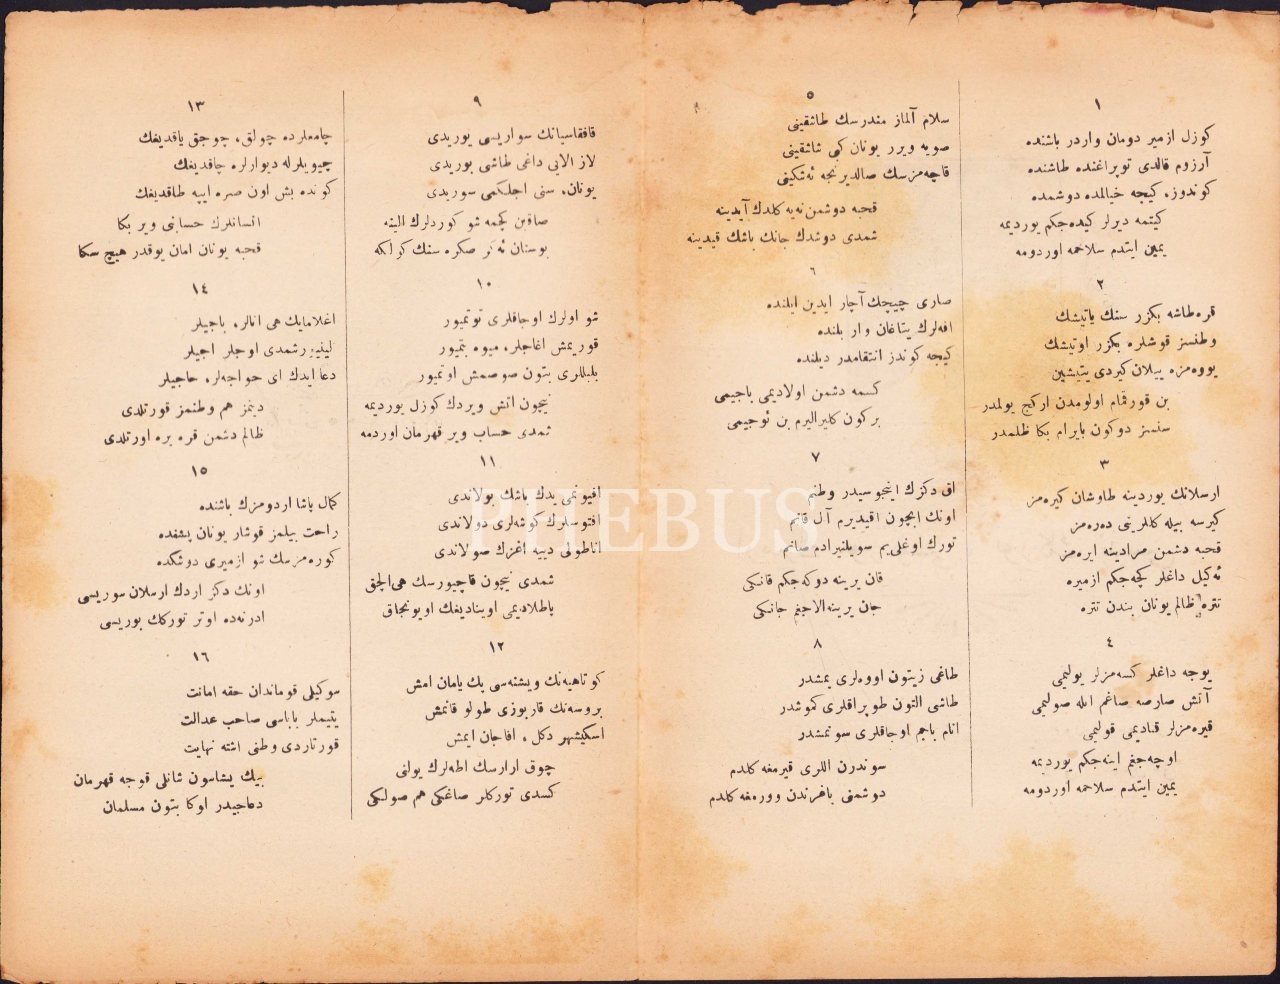 ١
كوزل ازمير دومان واردر باشنده
آرزوم قالدى توپراغنده طاشنده
كوندوزه كيجه خيالمده دوشمده
كيتمه ديرلر كيده‌جكم يورديمه
يمين ايتدم سلاحمه اوردومه
٢
قره‌طاشه بكزر سنك ياتيشك
وطنسز قوشلره بكزر اوتيشك
يووه‌مزه ييلان كيردى يتيشين
بن قورقمام اولومدن اركيج يولمدر
سنسز دوكون بايرام بكا ظلمدر
٣
ارسلانك يوردينه طاوشان كيره‌مز
كيرسه بيله كللرينى ده‌ره‌مز
قحبه دشمن مرادينه ايره‌مز
ئه‌كيل داغلر كچه‌جكم ازميره
تتره ظالم يونان بندن تتره
٤
يوجه داغلر كسه‌مزلر يوليمى
آتش صارصه صاغم ايله صوليمى
قيره‌مزلر قناديمى قوليمى
اوچه‌جغم اينه‌جكم يورديمه
يمين ايتدم سلاحمه اوردومه
٥
سلام آلماز مندرسك طاشقينى
صويه ويرر يونان كبى شاشقينى
قاچه‌مزسك صالديرنجه ئه‌شكينى
قحبه دوشمن نه‌يه كلدك آيدينه
شمدى دوشدك جانك باشك قيدينه
٦
صارى چيچك آچار ايدين ايلنده
افه‌لرك يتاغان وار بلنده
كيجه كوندز انتقامدر ديلنده
كسمه دشمن اولاديمى باجيمى
بركون كليراليرم بن ئوجيمى
٧
اق دكزك اينجوسيدر وطنم
اونك ايچون اقيديرم آل قانم
تورك اوغلى‌يم سويلنيرادم صانم
قان يرينه دوكه‌جكم قانكى
جان يرينه‌الاجغم جانكى
٨
طاغى زيتون اووه‌لرى يمشدر
طاشى التون طوپراقلرى كموشدر
انام باجم اوجاقلرى سونمشدر
سوندرن اللرى قيرمغه كلدم
دوشمنى باغرندن وورمغه كلدم
٩
قافقاسيانك سواريسى يوريدى
لاز الايى داغى طاشى بوريدى
يونان، سنى اجلكمى سوريدى
صاقين كچمه شو كوردلرك الينه
بوستان ئه‌كر صكره سنك كوكه
١٠
شو اولرك اوجاقلرى توتميور
قوريمش اغاجلر، ميوه بتميور
بلبللرى بتون صوصمش اوتميور
نيچون اتش ويردك كوزل يورديمه
شمدى حساب وير قهرمان اوردمه
١١
افيونمى يدك باشك بولاندى
افتوسلرك كوشه‌لرى دولاندى
اناطولى دييه اغزك صولاندى
شمدى نيچون قاچيورسك هى‌الچق
پاطلاديمى اويناديغك اويونجاق
١٢
كوتاهيه‌نك ويشنه‌سى پك يامان امش
بروسه‌نك قارپوزى طولو قانمش
اسكيشهر دكل، افاجان ايمش
چوق ارارسك اطه‌لرك يولنى
كسدى توركلر صاغكى هم صولكى
١٣
چامعلرده چولق، چوجق ياقديغك
چيويلرله ديوارلره چاقديغك
كونده بش اون صره ايپه طاقديغك
انسانلرك حسابنى وير بكا
قحبه يونان امان يوقدر هيچ سكا
١٤
اغلامايك هى انالر، باجيلر
لينيورشمدى اوجلر اجيلر
دعا ايدك اى خواجه‌لر، حاجيلر
دينمز هم وطنمز قورتلدى
ظالم دشمن قره يره اورتلدى
١٥
كمال پاشا اردومزك باشنده
راحت بيلمز قوشار يونان پشنده
كوره‌مزسك شو ازميرى دوشكده
اونك دكز اردك ارسلان سوريسى
ادرنه‌ده اوتر توركك بوريسى
١٦
سوكيلى قوماندان حقه امانت
يتيملر باباسى صاحب عدالت
قورتاردى وطنى اشته نهايت
بيك يشاسون شانلى قوجه قهرمان
دعاجيدر اوكا بتون مسلمان